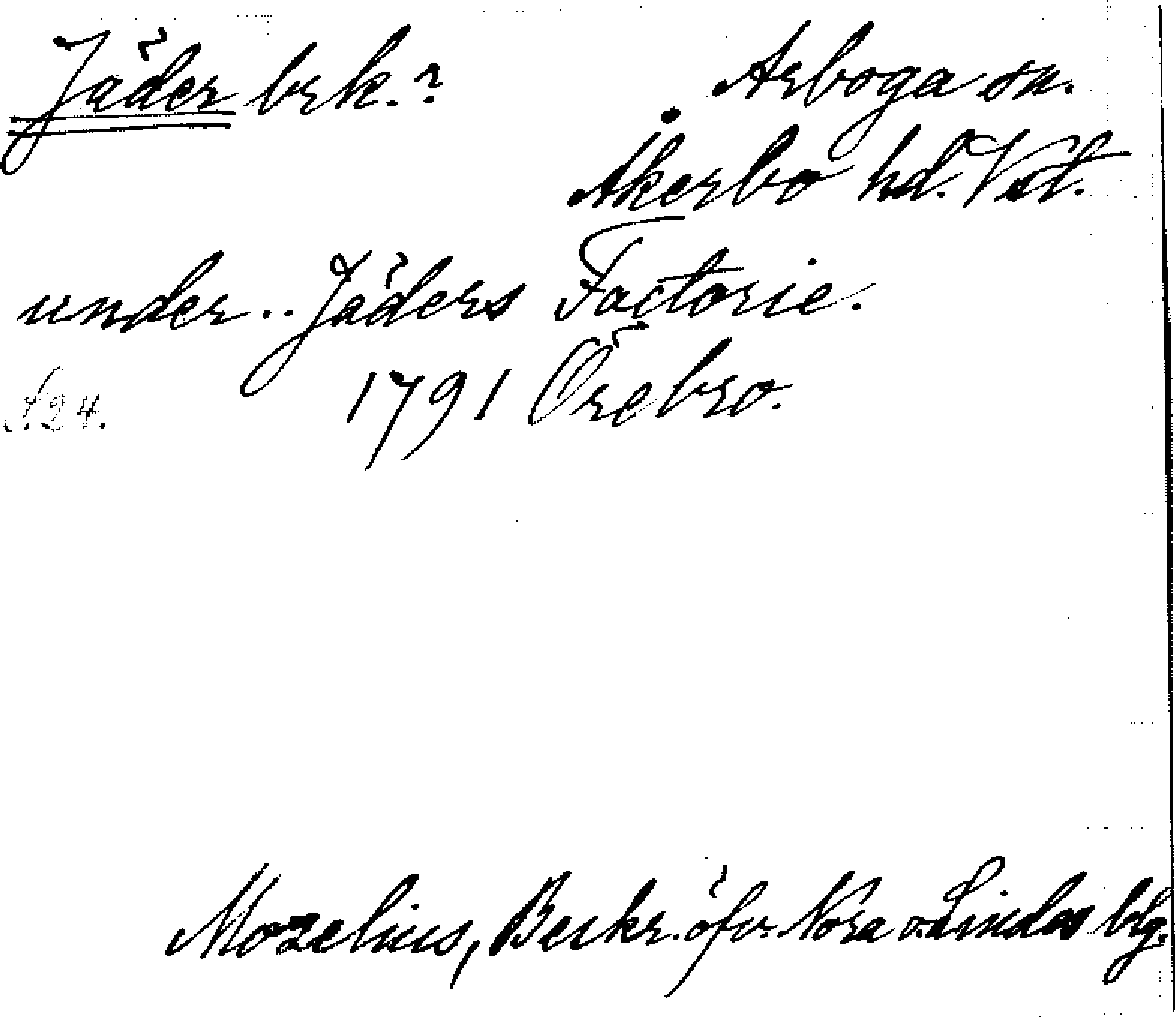 Jäder brk.? Arboga sn.
Åkerbo hd. Vstl.
under.. Jäders Factorie.
S. 24. 1791 Örebro.
Mozelius, Beskr. öfv. Nora o Lindes blg.